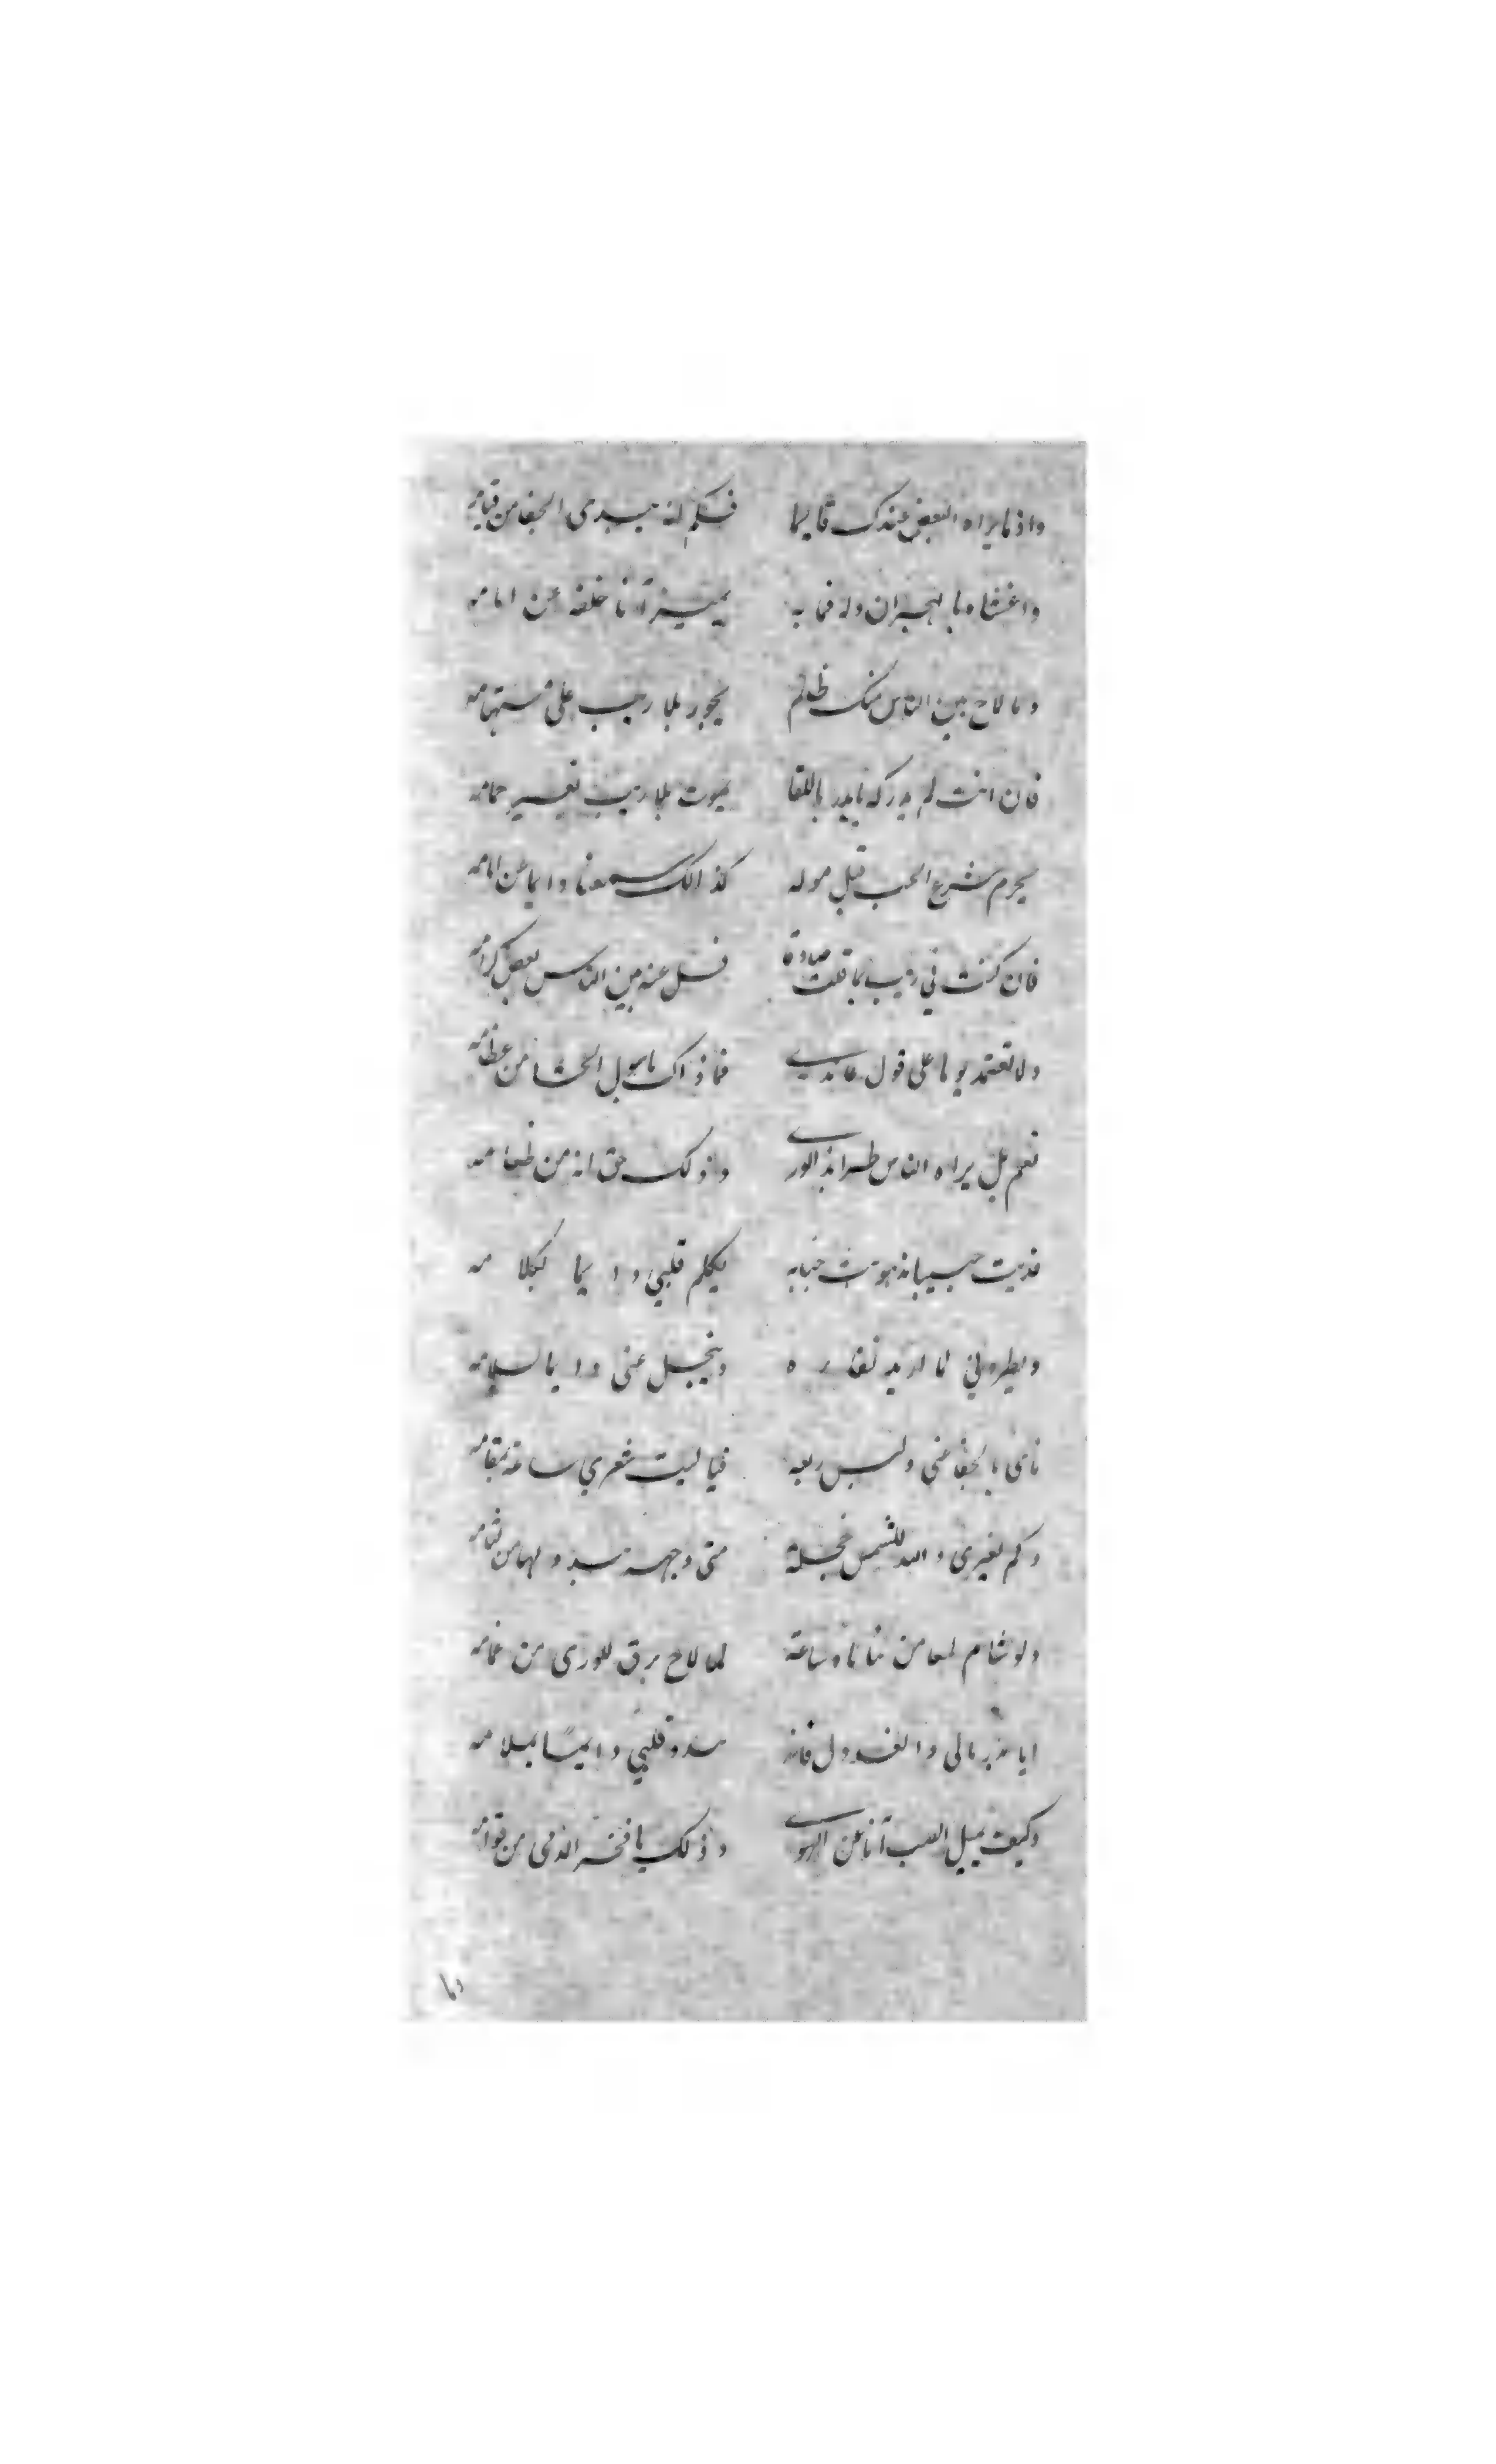 واذا ما يراه البعض عندك قايما فسكم له يبدى الجفا من قيامه
واغشاه بالهجران وله فما به يميز آنا خلفه عن امامه
وما لاح بين الناس منك ظلم يجور بلا ريب على مستهامه
فان انت لم يدركه باللقا يموت بلا ريب بغير حمامه
يحرم شرع الحب قبل موله كذالك سمعنا دايما عن امامه
فان كنت في ريب بما قلت صادقا فسل عنه بين الناس بعض كرامه
ولا تعتمد يوما على قول عاندي فما ذاك ياسول الحشا من عظامه
نعم بل يراه الناس طرا بذا الورى وذلك حق انه من طغامه
فديت حبيبا يكلم قلبي دايما بكلامه
لما اريد ويبخل عني دايما بسلامه
ناى بالجفا عنى وليس ربعه فيا ليت شعري ساعة بمقامه
وكم لغيرى والله للشمس خجلة متى وجهه يبدو لها من لثامه
ولو شام لمعا من ثناياه ساعة لما لاح برق للورى من غمامه
ايا بدر مالى والعذول فانه قلبي دايما بملامه
وكيف يميل الصب آنا عن الهوى وذلك يا فخر الدمى من قوامه
وما